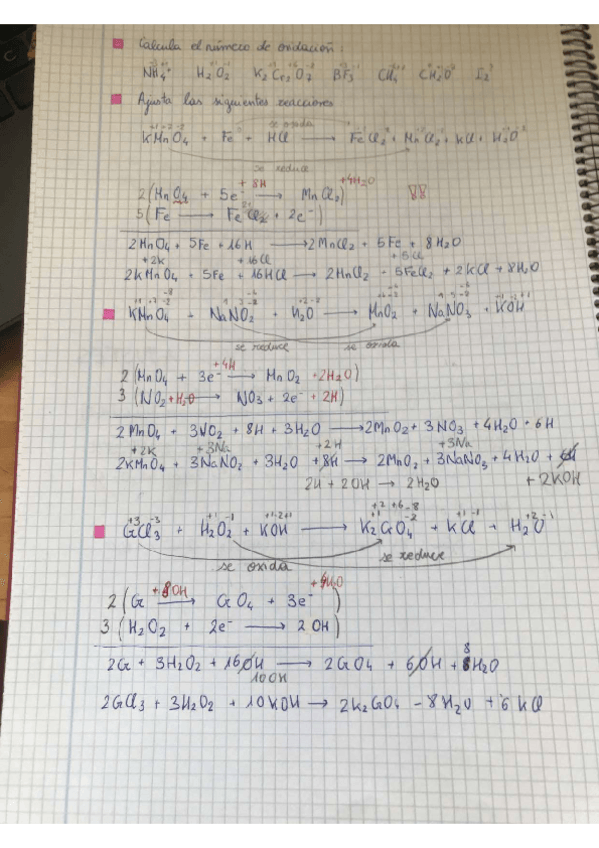 Calcula el número de oxidación:
NH4+ H2O2 K2Cr2O7 BF3 CH4 CH2O I2
Ajusta las siguientes reacciones
se oxida
KMnO4 + Fe + HCl → FeCl2 + MnCl2 + KCl + H2O
se reduce
+ 8H +4H2O
2(MnO4 + 5e- → MnCl2)
5(Fe → FeCl2 + 2e-)
2MnO4 + 5Fe + 16H → 2MnCl2 + 5Fe + 8H2O
+2K +16Cl + 5Cl
2KMnO4 + 5Fe + 16HCl → 2MnCl2 - 5FeCl2 + 2KCl + 8H2O
KMnO4 + NaNO2 + H2O → MnO2 + NaNO3 + KOH
se reduce se oxida
+4H
2(MnO4 + 3e- → MnO2 +2H2O)
3(NO2 +H2O → NO3 + 2e- + 2H)
2MnO4 + 3NO2 + 8H + 3H2O → 2MnO2 + 3NO3 + 4H2O + 6H
+2K +3Na +2H +3Na
2KMnO4 + 3NaNO2 + 3H2O + 8H → 2MnO2 + 3NaNO3 + 4H2O + 6H
2H + 2OH → 2H2O + 2KOH
+3 -3 +1 -1 +1-2+1 +2 +6 -8
CrCl3 + H2O2 + KOH → K2CrO4 + KCl + H2O
se oxida se reduce
+8OH +4H2O
2(Cr → CrO4 + 3e-)
3(H2O2 + 2e- → 2OH)
2Cr + 3H2O2 + 16OH → 2CrO4 + 6OH + 8H2O
10OH
2CrCl3 + 3H2O2 + 10KOH → 2K2CrO4 - 8H2O + 6KCl